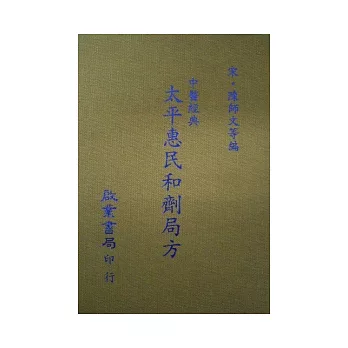 宋·陳師文等編
中醫經典
太平惠民和劑局方
啟業書局印行